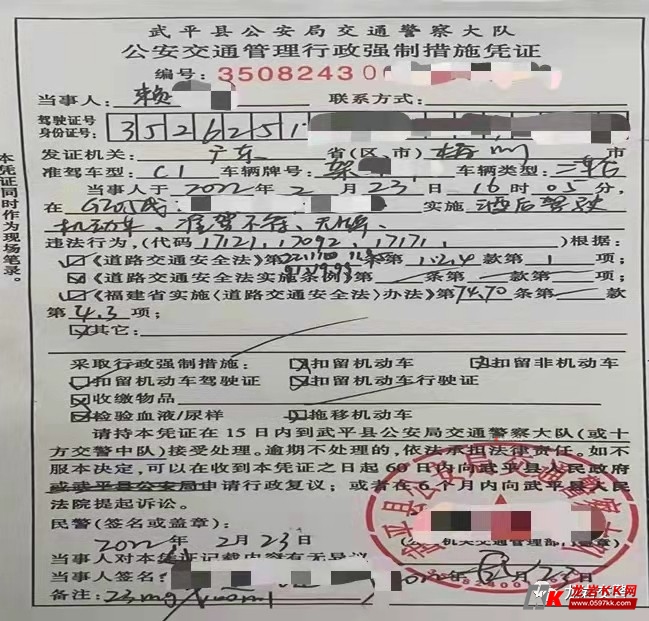 武平县公安局交通警察大队
公安交通管理行政强制措施凭证
编号：35082430
当事人：赖 联系方式：
驾驶证号
身份证号： 3526251
发证机关：广东 省（区、市） 梅州 市
准驾车型：C1 车辆牌号： 车辆类型：
当事人于 2022 年 2 月 23 日 16 时 05 分，
在 G205线 实施 酒后驾驶
机动车、准驾不符、无牌
违法行为，（代码 17121、17092、17171 ）根据：
《道路交通安全法》第 条第 款第 1 项；
《道路交通安全法实施条例》第 条第 款第 项；
《福建省实施〈道路交通安全法〉办法》第74.70 条第 款
第 4.3 项；
其它：
采取行政强制措施： 扣留机动车 扣留非机动车
扣留机动车驾驶证 扣留机动车行驶证
收缴物品
检验血液/尿样 拖移机动车
请持本凭证在15日内到武平县公安局交通警察大队（或十
方交警中队）接受处理。逾期不处理的，依法承担法律责任。如不
服本决定，可以在收到本凭证之日起60日内向武平县人民政府
或武平县公安局申请行政复议；或者在6个月内向武平县人民
法院提起诉讼。
民警（签名或盖章）：
2022年 2月 23日
当事人对本凭证记载内容有无异议
当事人签名：
备注：23mg/100ml
本凭证同时作为现场笔录。
龙岩KK网
www.0597kk.com